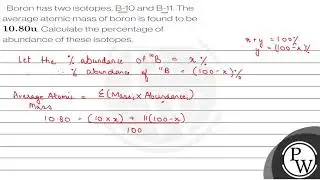 Boron has two isotopes, B-10 and B-11. The
average atomic mass of boron is found to be
10.80u. Calculate the percentage of
abundance of these isotopes.
x+y = 100%
y = (100-x)%
Let the % abundance of ¹⁰B = x%
∴ % abundance of ¹¹B = (100-x)%
Average Atomic Mass = Σ(Massᵢ × Abundanceᵢ)
10.80 = (10 × x) + 11(100-x)
100
PW